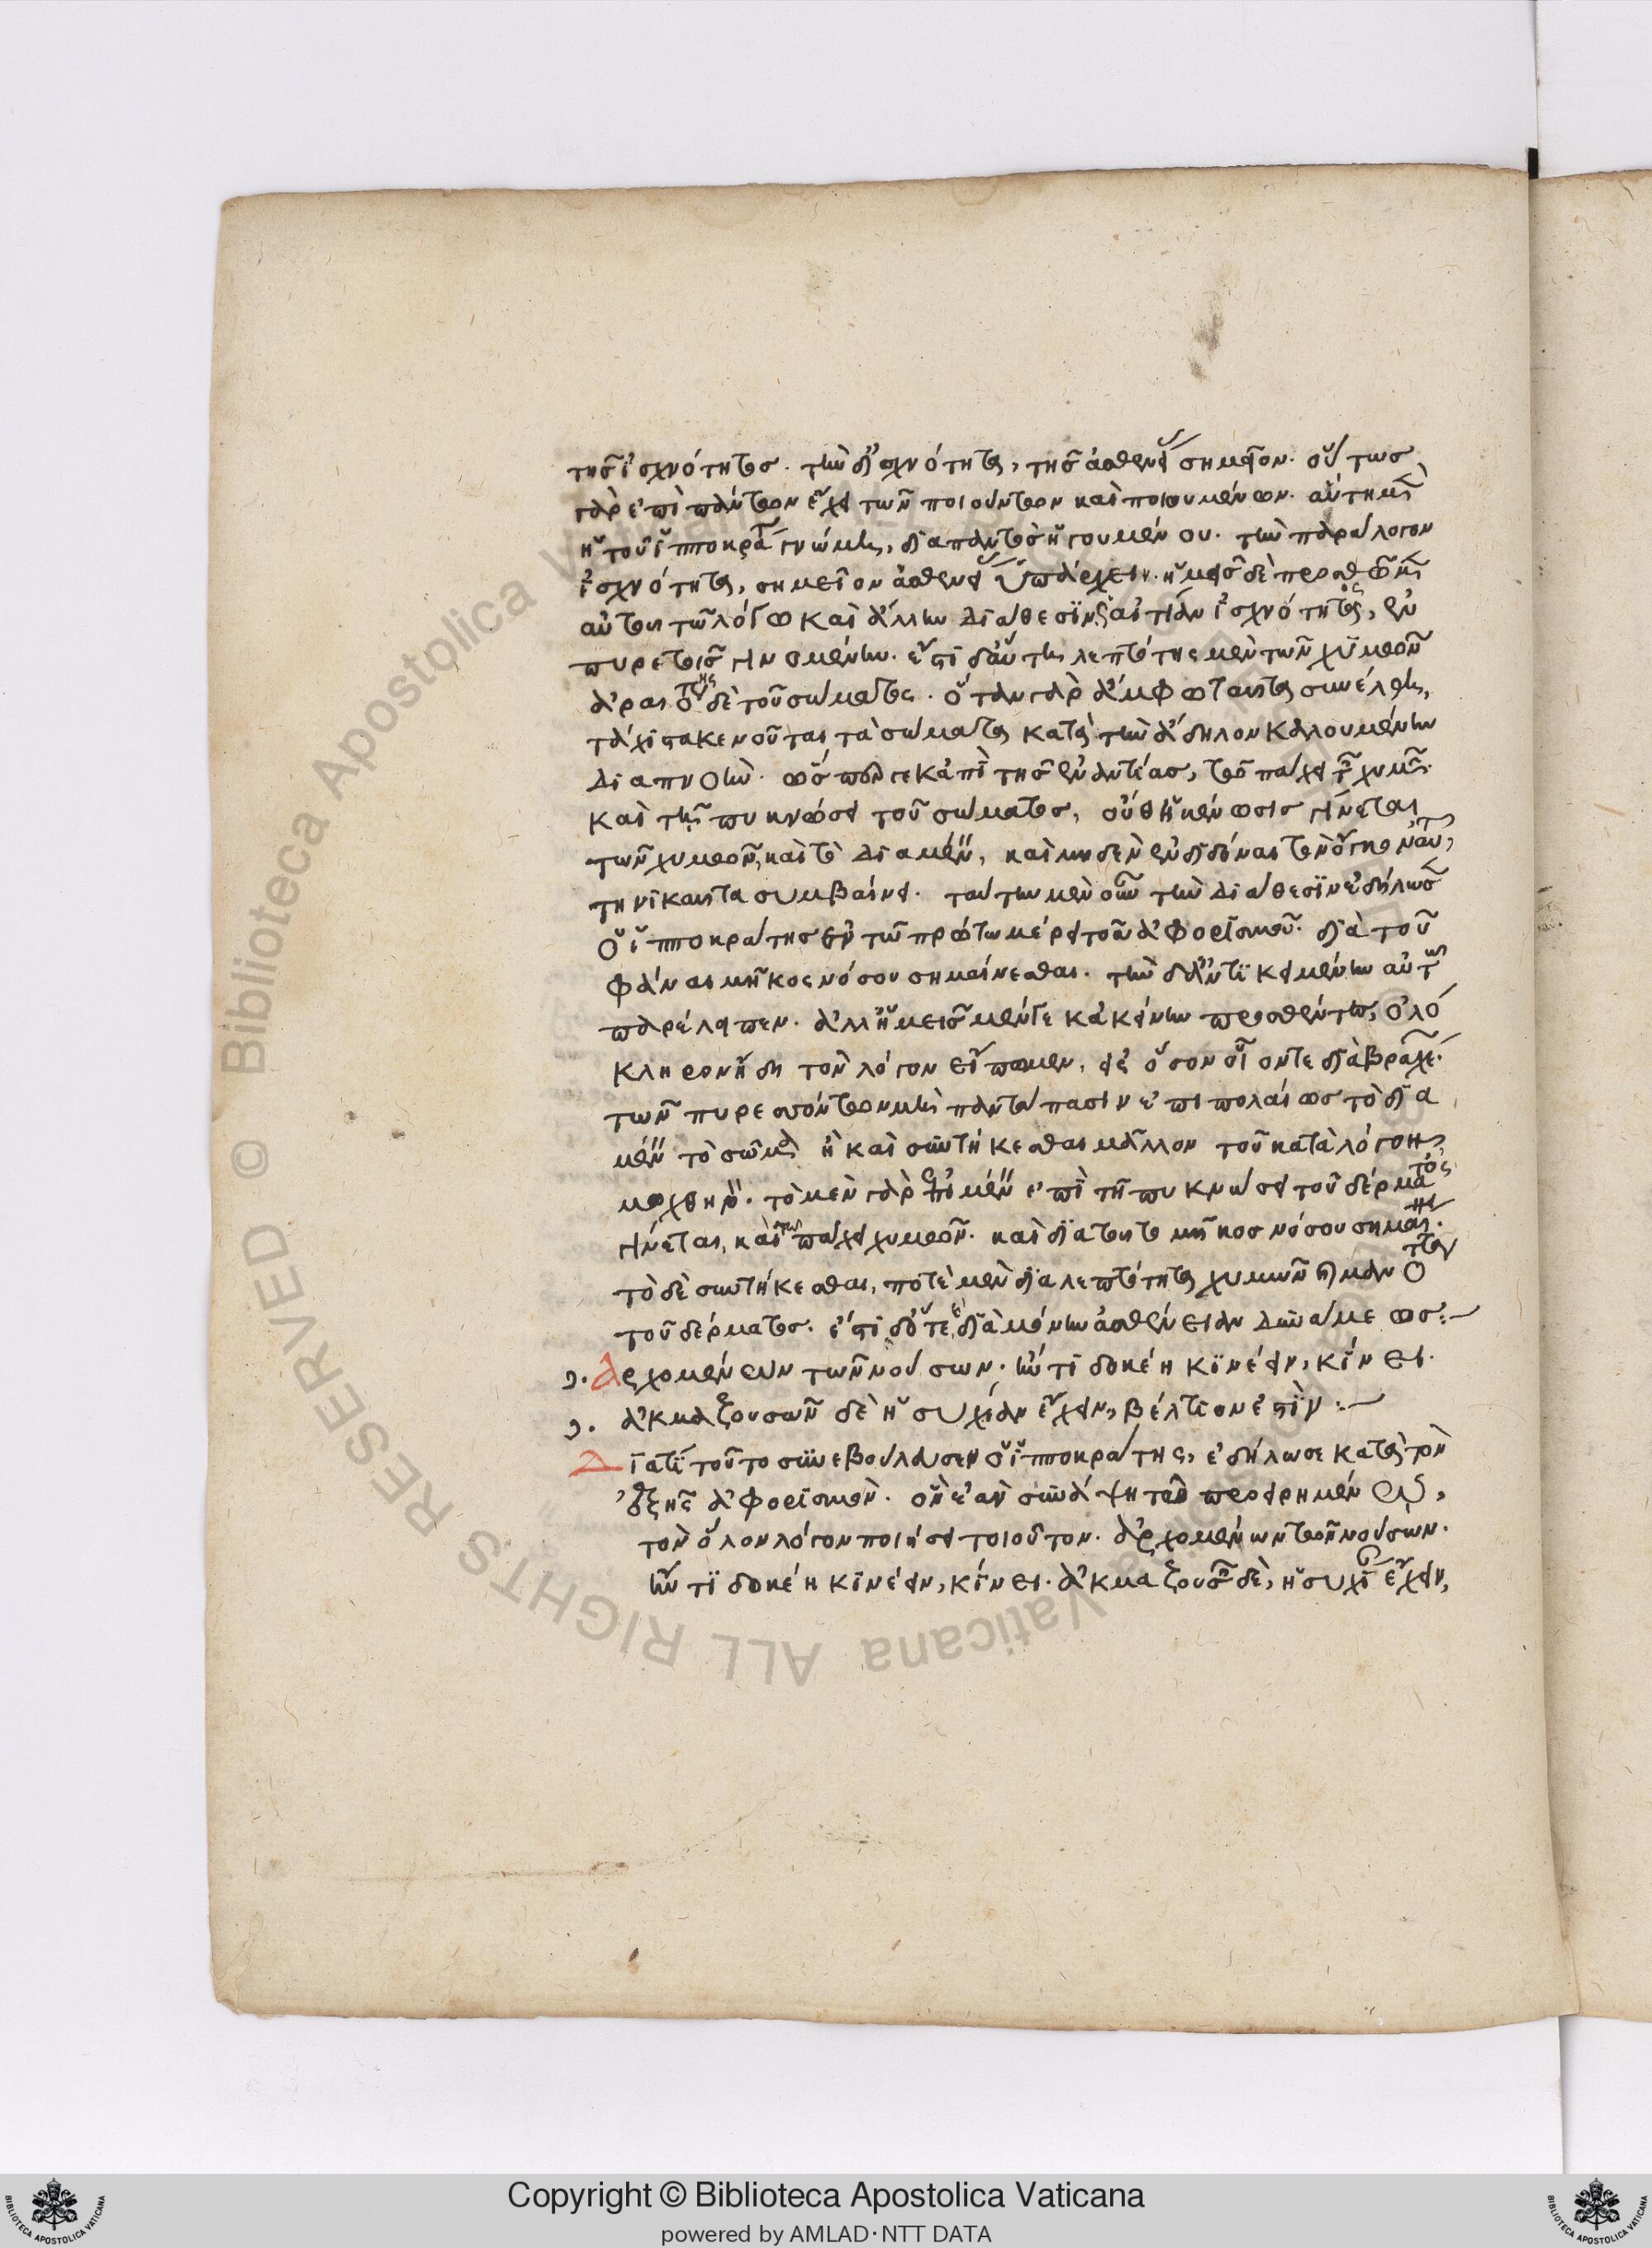 τῆς ἰσχνότητος. τὴν δ' ἰσχνότητα, τῆς ἀσθενείας σημεῖον. οὕτως
γὰρ ἐπὶ πάντων ἔχει τῶν ποιούντων καὶ ποιουμένων. αὕτη μὲν
ἡ τοῦ ἱπποκράτους γνώμη, διαπαντὸς ἡγουμένου. τὴν παράλογον
ἰσχνότητα, σημεῖον ἀσθενείας ὑπάρχειν. ἡμεῖς δὲ προσθῶμεν
αὐτοῦ τῶ λόγω καὶ ἄλλην διάθεσιν αἰτίαν ἰσχνότητος, ἐν
πυρετοῖς γινομένην. ἔστι δ' αὕτη λεπτότης μὲν τῶν χυμῶν
ἀραιότης δὲ τοῦ σώματος. ὅταν γὰρ ἄμφω ταῦτα συνέλθη,
τάχιστα κενοῦται τὰ σώματα κατὰ τὴν ἄδηλον καλουμένην
διαπνοήν. ὥσπερ γε κἀπὶ τῆς ἐναντίας, τῶ πάχει τῶν χυμῶν
καὶ τῆ πυκνώσει τοῦ σώματος, οὔθ' ἡ κένωσις γίνεται
τῶν χυμῶν, καὶ τὸ διαμένειν, καὶ μηδὲν ἐνδιδόναι τὸν ὄγκον αὐτ
τηνικαῦτα συμβαίνει. ταύτην μὲν οὖν τὴν διάθεσιν ἐδήλωσεν
ὁ ἱπποκράτης ἐν τῶ πρώτω μέρει τοῦ ἀφορισμοῦ. διὰ τοῦ
φάναι μῆκος νόσου σημαίνεσθαι. τὴν δ' ἀντικειμένην αὐτῆ
παρέλειπεν. ἀλλ' ἡμεῖς μέν γε κἀκείνην προσθέντες, ὁλό
κληρον ἤδη τὸν λόγον εἴπωμεν, εἰς ὅσον οἷόν τε διὰ βραχέων
τῶν πυρεσσόντων μὴ παντάπασιν ἐπιπολαίως τὸ δια
μένειν τὸ σῶμα ἢ καὶ συντήκεσθαι μᾶλλον τοῦ κατὰ λόγον,
μοχθηρόν. τὸ μὲν γὰρ ἐπιμένειν ἐπὶ τῆ πυκνώσει τοῦ δέρματος
γίνεται, καὶ τῶ πάχει χυμῶν. καὶ διὰ τοῦτο μῆκος νόσου σημαίνει.
τὸ δὲ συντήκεσθαι, ποτὲ μὲν διὰ λεπτότητα χυμῶν καὶ μανότητα
τοῦ δέρματος. ἔστι δ' ὅτε διὰ μόνην ἀσθένειαν δυνάμεως:~
Ἀρχομένων τῶν νούσων. ἤν τι δοκέη κινέειν, κίνει.
ἀκμαζουσῶν δὲ ἡσυχίαν ἔχειν, βέλτιόν ἐστιν:~
Διατί τοῦτο συνεβούλευσεν ὁ ἱπποκράτης, ἐδήλωσε κατὰ τὸν
ἑξῆς ἀφορισμόν. ὃν ἐὰν συνάψη τις τῶ προειρημένω,
τὸν ὅλον λόγον ποιήσει τοιοῦτον. ἀρχομένων τῶν νούσων.
ἤν τι δοκέη κινέειν, κίνει. ἀκμαζουσῶν δὲ, ἡσυχίην ἔχειν,